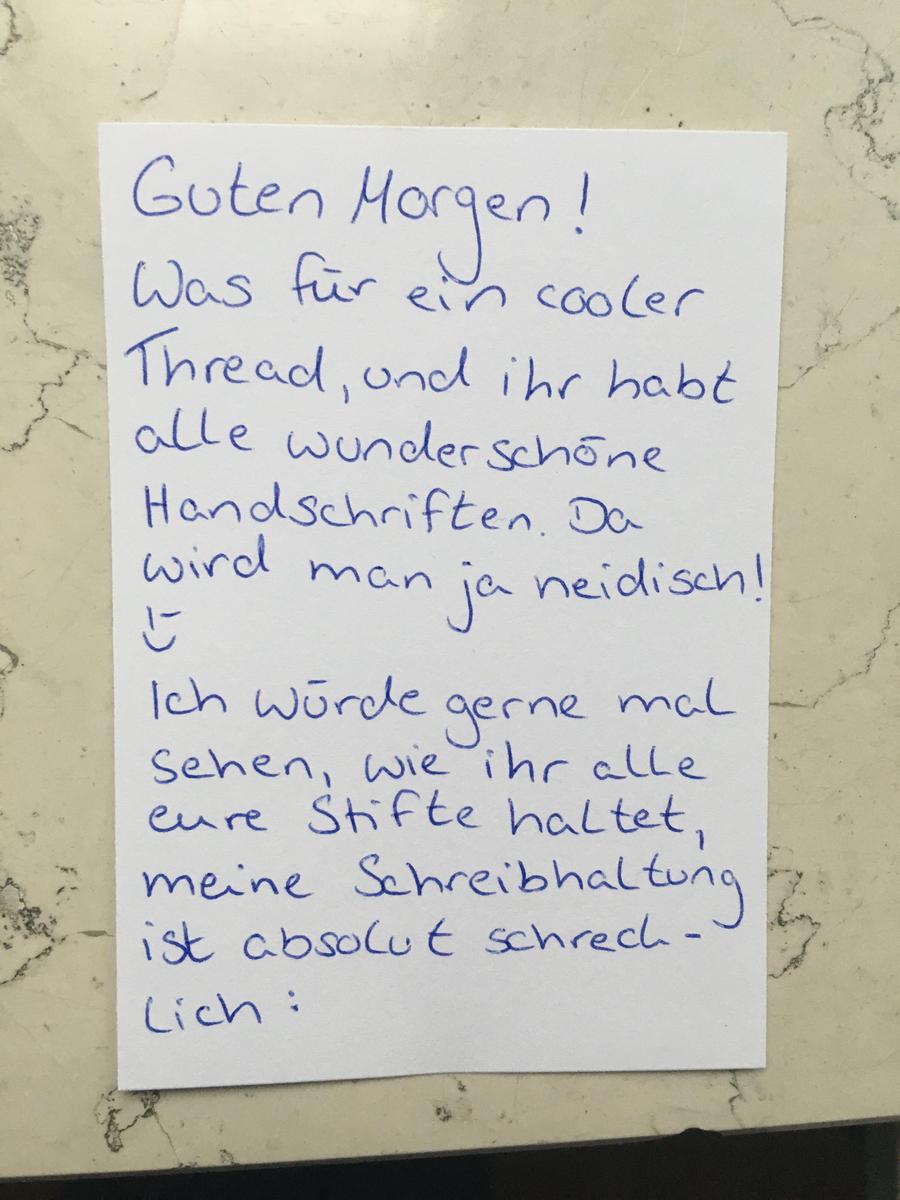 Guten Morgen!
Was für ein cooler
Thread, und ihr habt
alle wunderschöne
Handschriften. Da
wird man ja neidisch!
;-)
Ich würde gerne mal
sehen, wie ihr alle
eure Stifte haltet,
meine Schreibhaltung
ist absolut schreck-
lich: